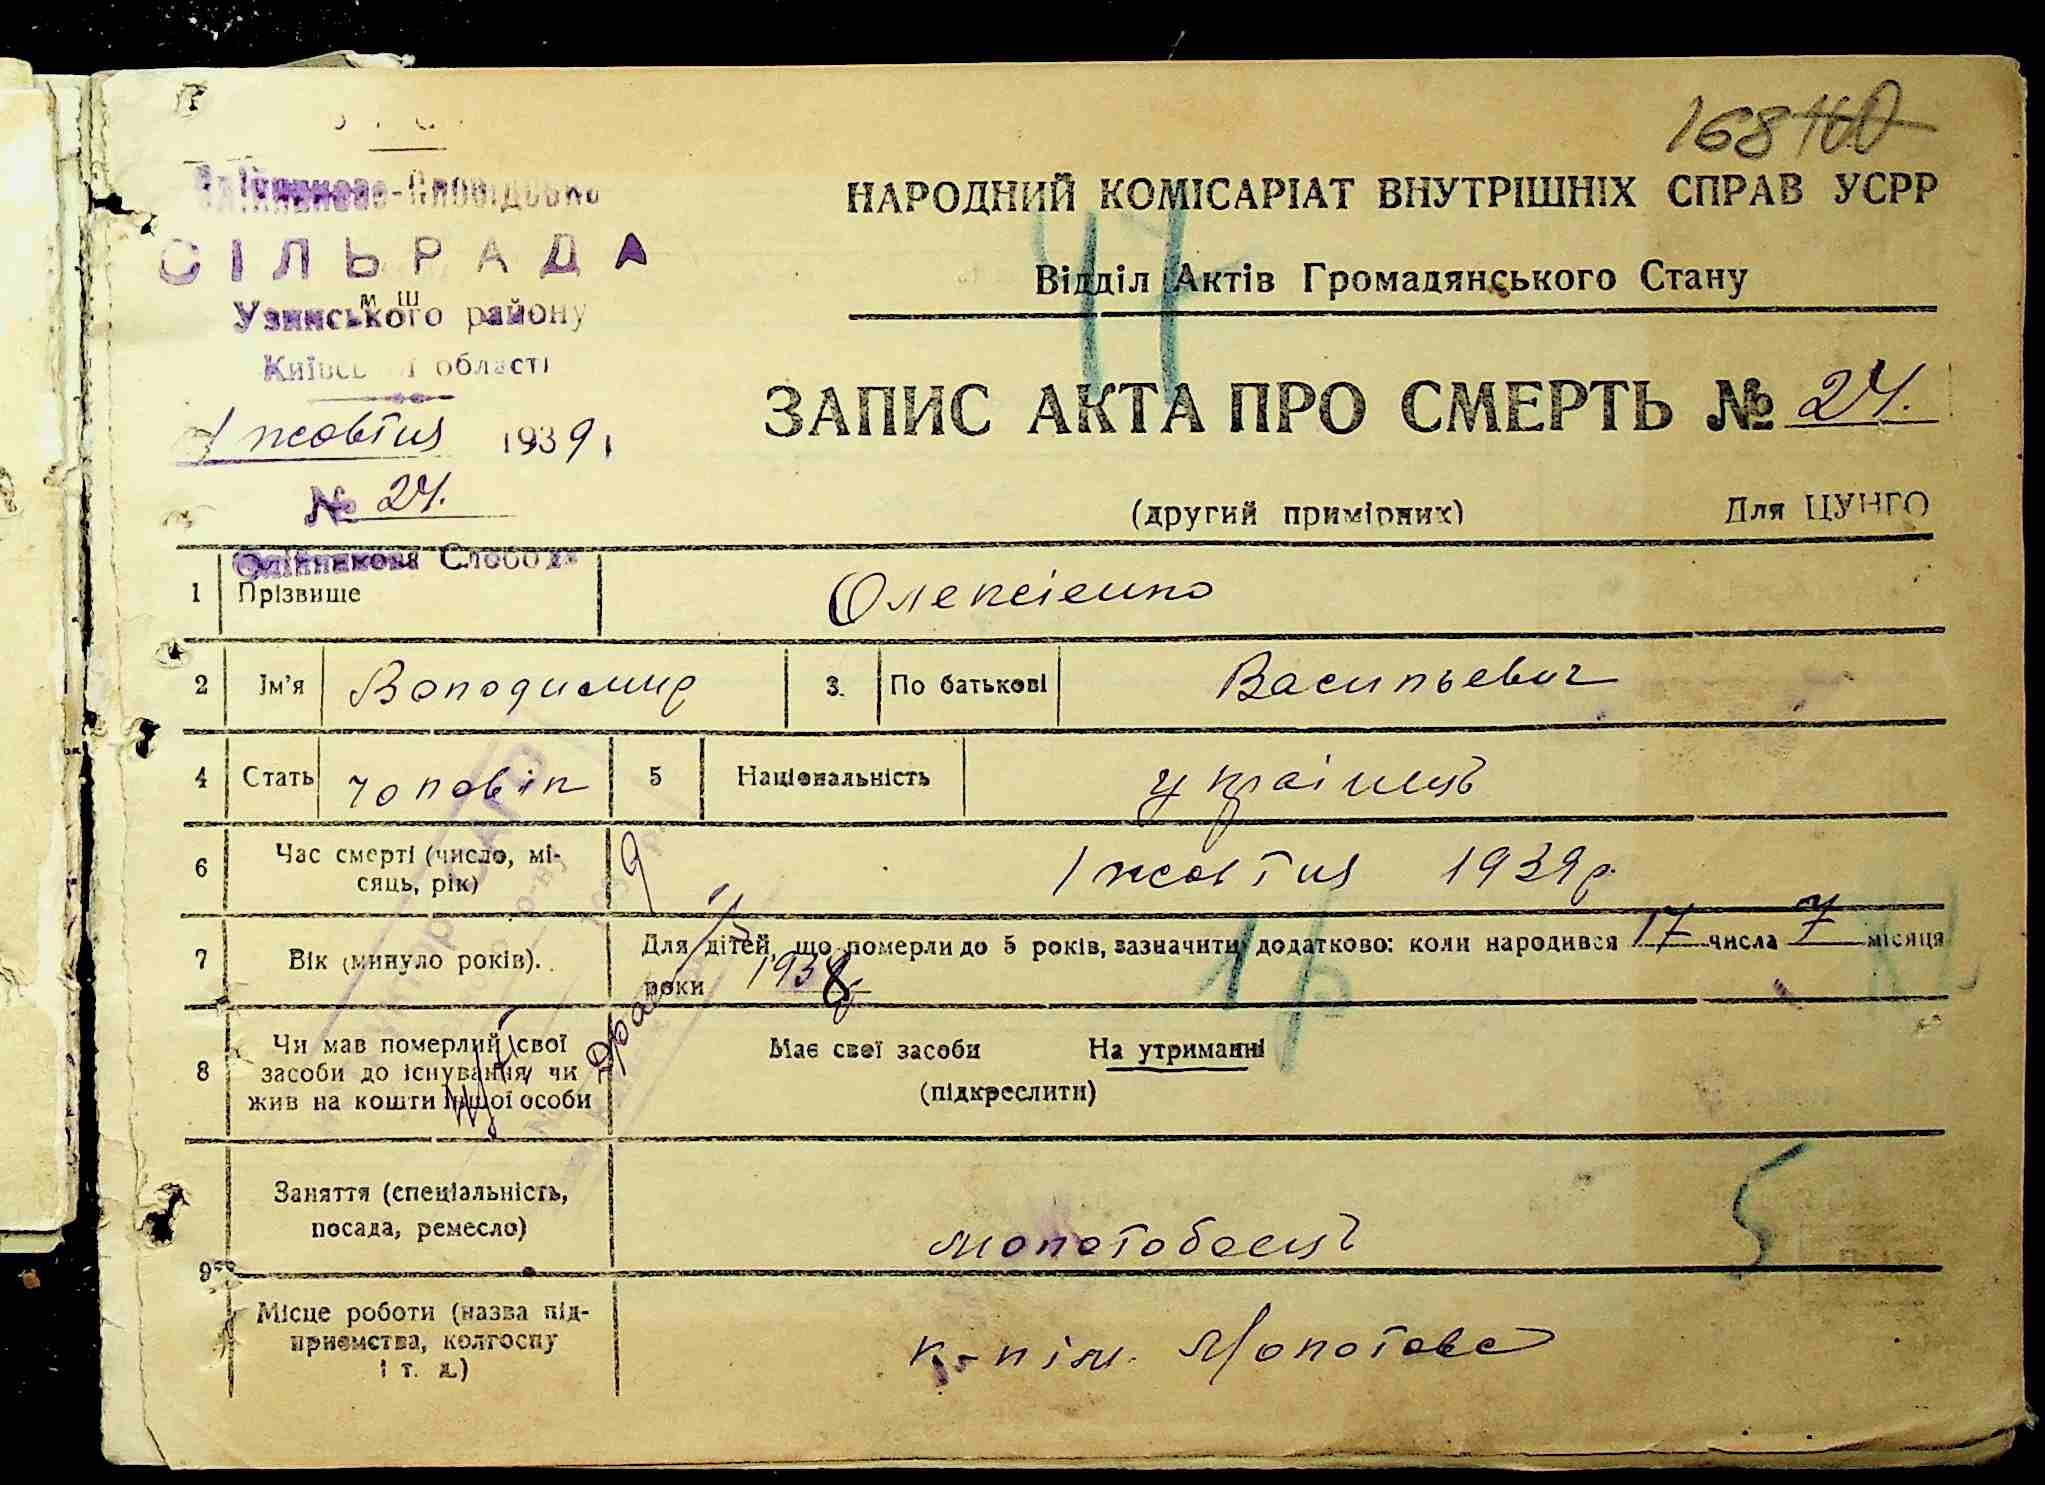 168 100
Олійникова-Слобідська
СІЛЬРАДА
Узинського району
Київської області
1 жовтня 1939 р
№ 24.
Олійникова Слобода
НАРОДНИЙ КОМІСАРІАТ ВНУТРІШНІХ СПРАВ УСРР
Відділ Актів Громадянського Стану
47
ЗАПИС АКТА ПРО СМЕРТЬ № 24.
(другий примірник) Для ЦУНГО
1 Прізвище Олексієнко
2 Ім'я Володимир 3. По батькові Васильевич
4 Стать чоловік 5 Національність українець
6 Час смерті (число, мі-
сяць, рік) 1 жовтня 1939 р.
7 Вік (минуло років). Для дітей, що померли до 5 років, зазначити додатково: коли народився 17 числа 7 місяця
роки 1938
1 р
8 Чи мав померлий свої
засоби до існування, чи
жив на кошти іншої особи
Має свої засоби На утриманні
(підкреслити)
Заняття (спеціальність,
посада, ремесло)
5
9
Місце роботи (назва під-
приємства, колгоспу
і т. д.)
к-п ім. Молотова